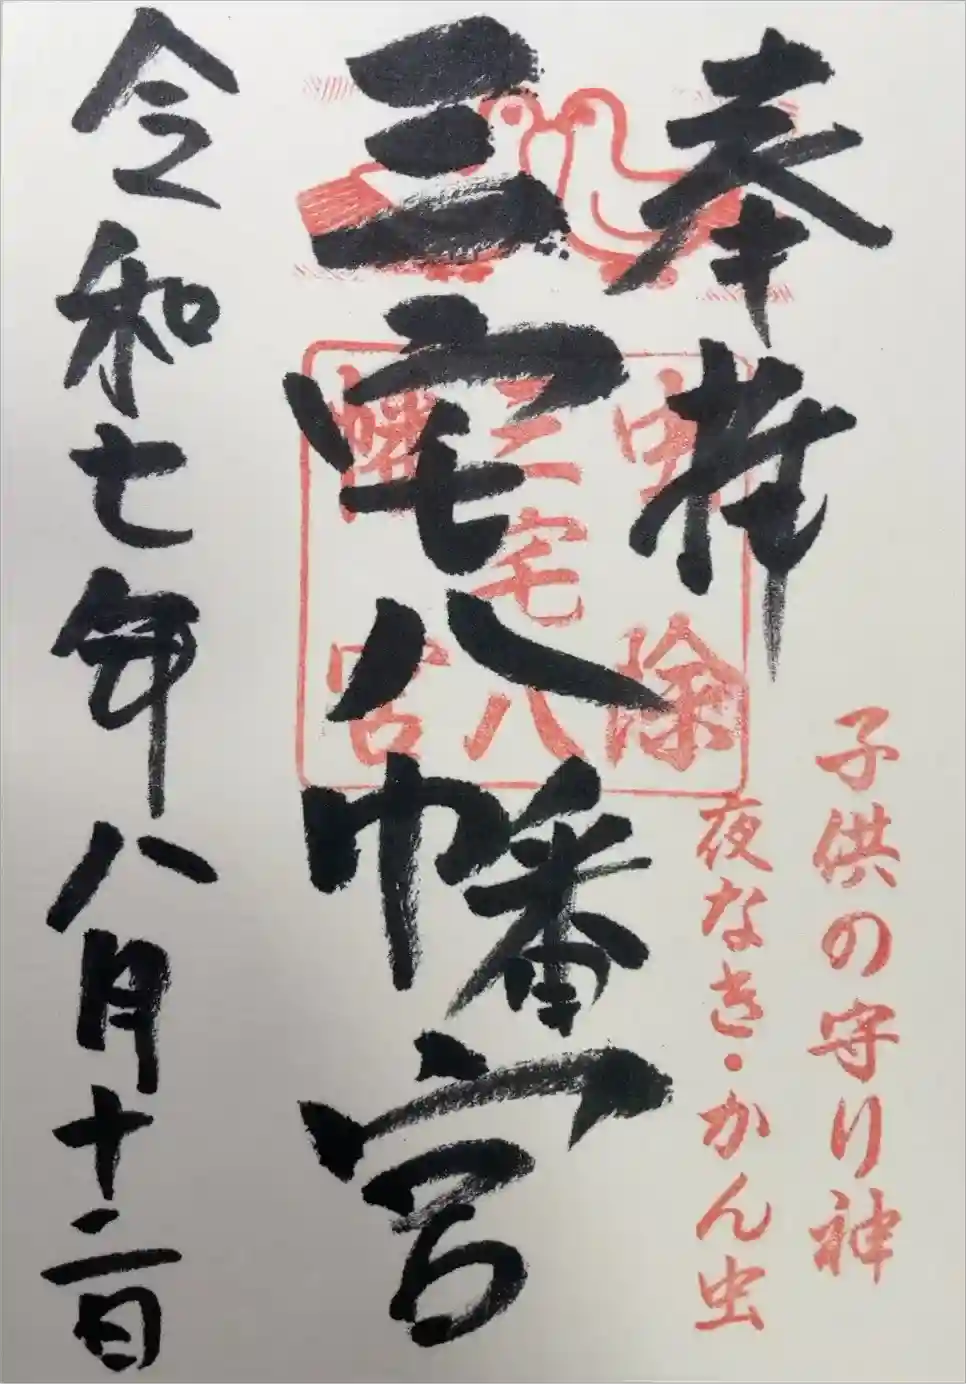 奉拝
子供の守り神
夜なき・かん虫
虫除
三宅八
幡宮
三宅八幡宮
令和七年八月十二日